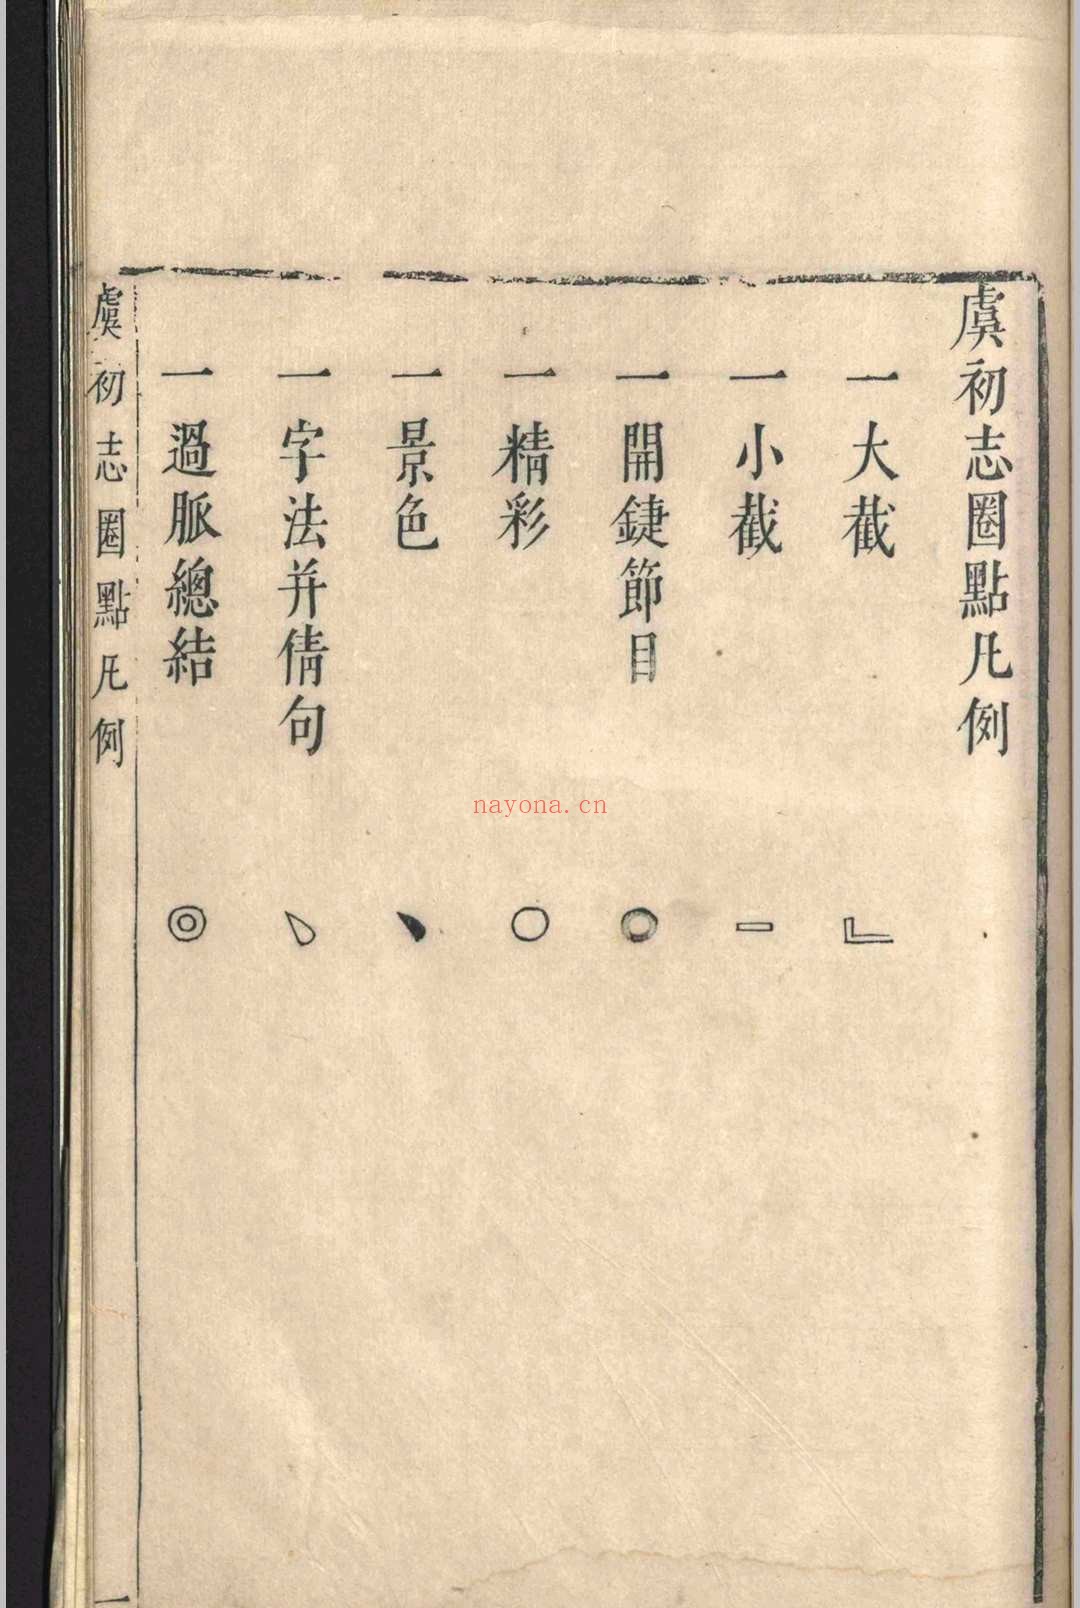 虞初志圈點凡例
一 大截 ⅃
一 小截 ▭
一 開鍵節目 ○
一 精彩 ○
一 景色 ﹅
一 字法并倩句 ﹆
一 過脈總結 ◎
虞初志圈點凡例 一
nayona.cn